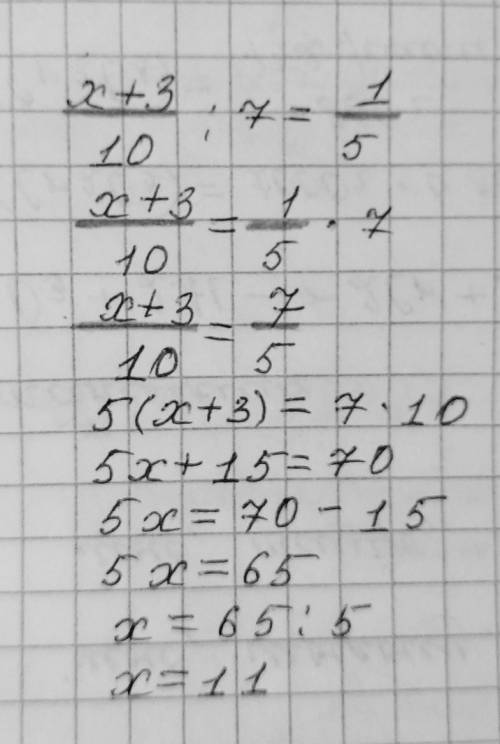 x+3/10 : 7 = 1/5
x+3/10 = 1/5 · 7
x+3/10 = 7/5
5(x+3) = 7 · 10
5x+15=70
5x=70-15
5x=65
x=65:5
x=11